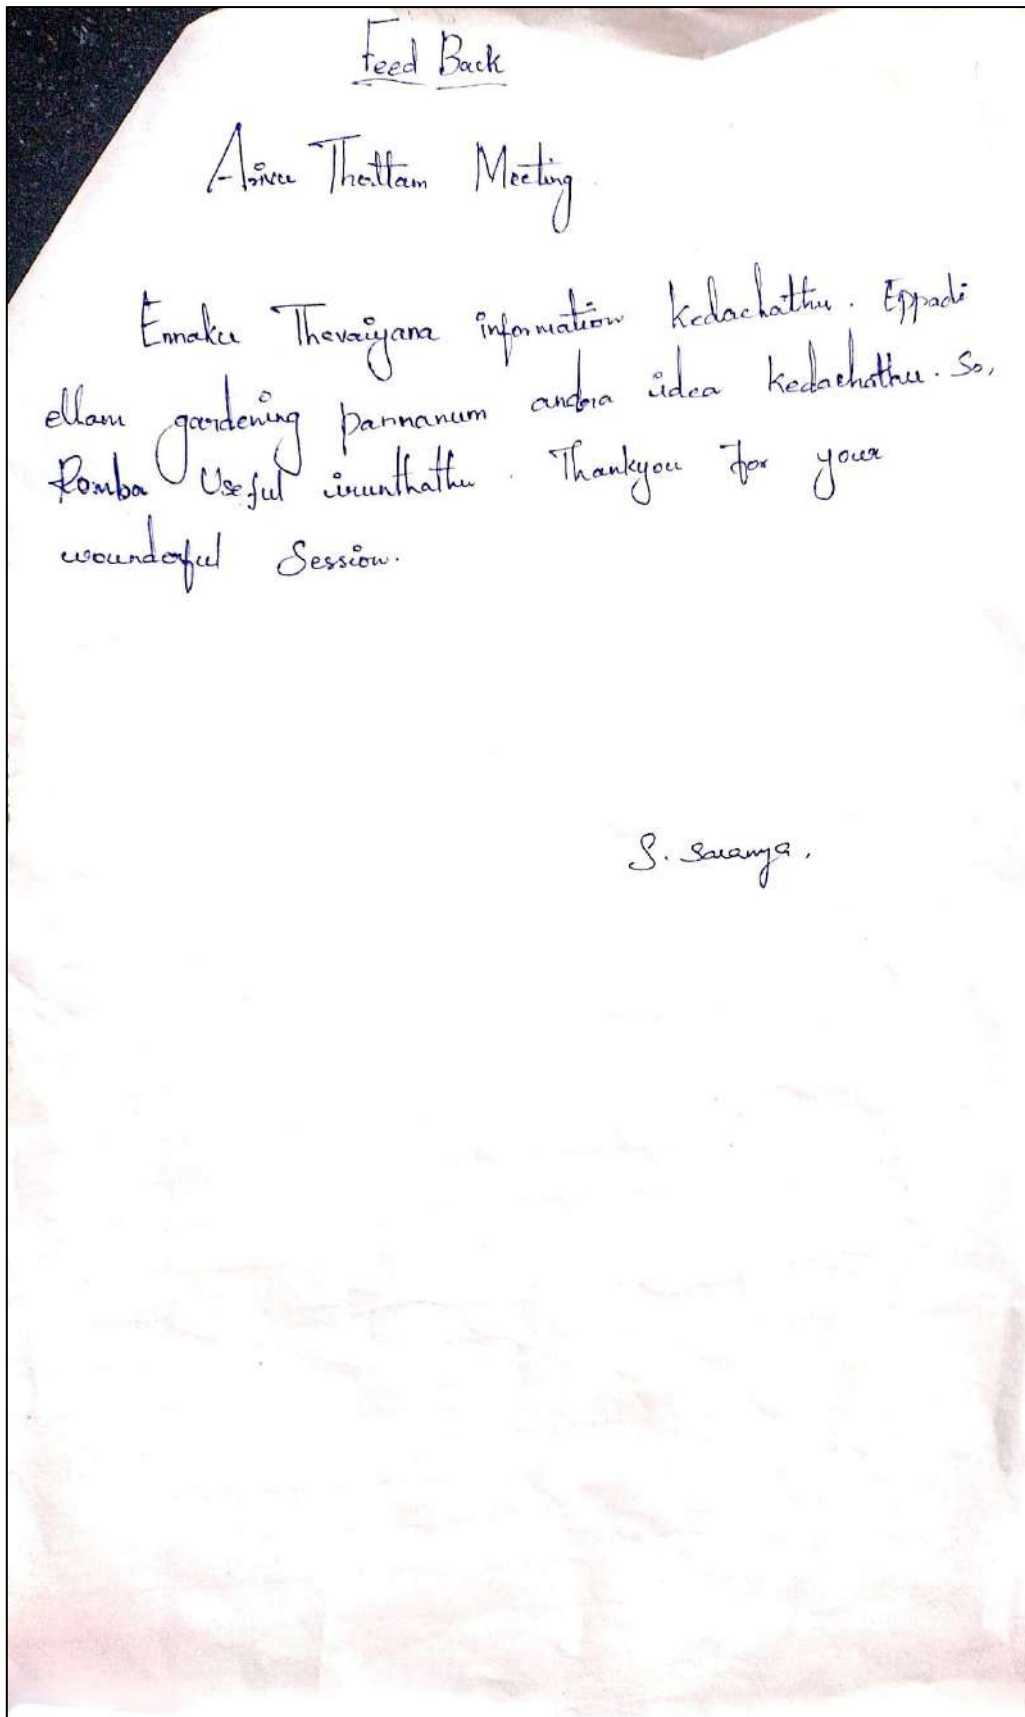 Feed Back
Arivu Thottam Meeting.
Ennaku Thevaiyana information kedachathu. Eppadi
ellam gardening pannanum andra idea kedachathu. So,
Romba Useful irunthathu. Thankyou for your
wounderful Session.
S. Saranya.